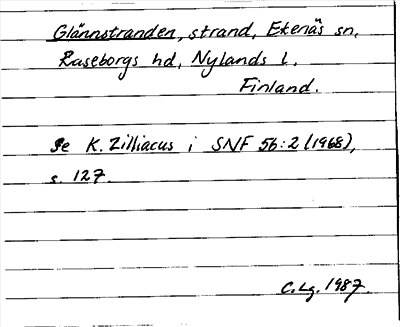 Glännstranden, strand, Ekenäs sn,
Raseborgs hd, Nylands l.
Finland.
Se K. Zilliacus i SNF 56:2 (1968),
s. 127.
C. Lg. 1987.